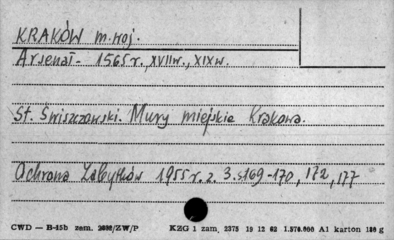 KRAKÓW m. woj.
Arsenał - 1565 r., XVII w., XIX w.
St. Świszczowski. Mury miejskie Krakowa.
Ochrona Zabytków 1955 r. z. 3. s. 169-170, 172, 177
CWD — B-15b zam. 2698/ZW/P KZG 1 zam. 2375 19 12 62 1.570.000 A1 karton 180 g